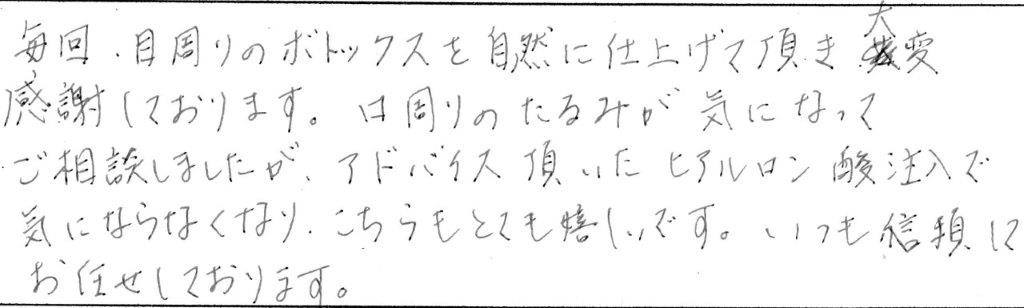 毎回、目周りのボトックスを自然に仕上げて頂き大変
感謝しております。口周りのたるみが気になって
ご相談しましたが、アドバイス頂いたヒアルロン酸注入で
気にならなくなり、こちらもとても嬉しいです。いつも信頼して
お任せしております。